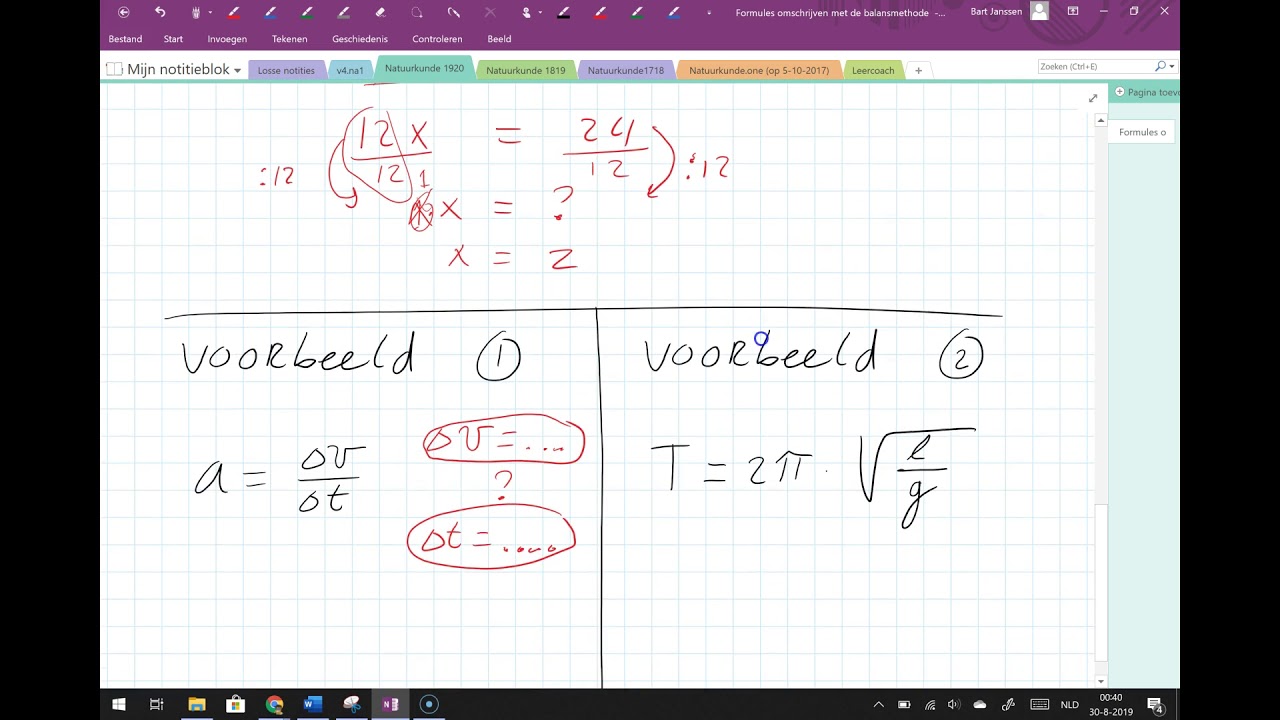 Formules omschrijven met de balansmethode -... Bart Janssen
Bestand Start Invoegen Tekenen Geschiedenis Controleren Beeld
Mijn notitieblok Losse notities v4.na1 Natuurkunde 1920 Natuurkunde 1819 Natuurkunde1718 Natuurkunde.one (op 5-10-2017) Leercoach + Zoeken (Ctrl+E)
Pagina toevo
Formules o
12 x = 24
:12 12 12 :12
1
x = ?
x = 2
voorbeeld 1
Δv = ....
a = Δv/Δt
?
Δt = .....
voorbeeld 2
T = 2π · √(l/g)
NLD 00:40
30-8-2019 4